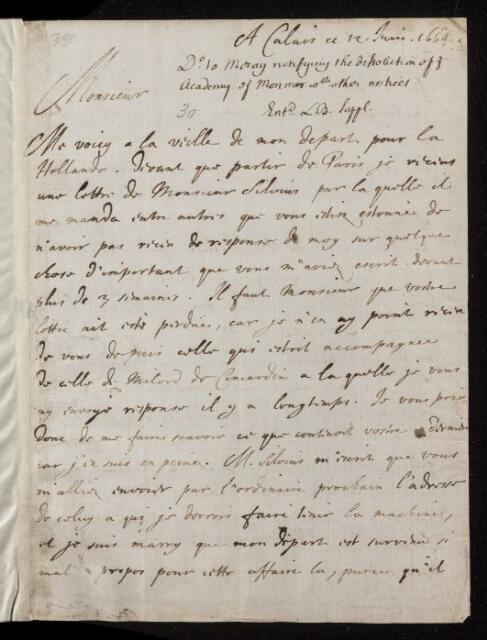 A Calais ce 12 Juin. 1664
Do to Moray notifying the dissolution of ye
Academy of Monmor wth other notices
Monsieur
30
Entd. LB. Suppl.
Me voicy a la veille de mon depart pour la
Hollande. devant que partir de Paris je receus
une lettre de Monsieur Silvius par la quelle il
me manda entre autres que vous estiez estonnè de
n'avoir pas receu de response de moy sur quelque
chose d'important que vous m'aviez escrit devant
plus de 3 semaines. Il faut Monsieur que vostre
lettre ait estè perdue, car je n'en ay point receu
de vous depuis celle qui estoit accompagnee
de celle de Milord de Kincardin a la quelle je vous
ay envoyè response il y a longtemps. Je vous prie
donc de me faire scavoir ce que contenoit vostre derniere
car j'en suis en peine. M. Silvius m'escrit que vous
m'alliez envoier par l'ordinaire prochain l'adresse
de celuy a qui je devrois faire tenir la machine,
et je suis marry que mon depart est survenu si
mal a propos pour cette affaire la, parce qu'il